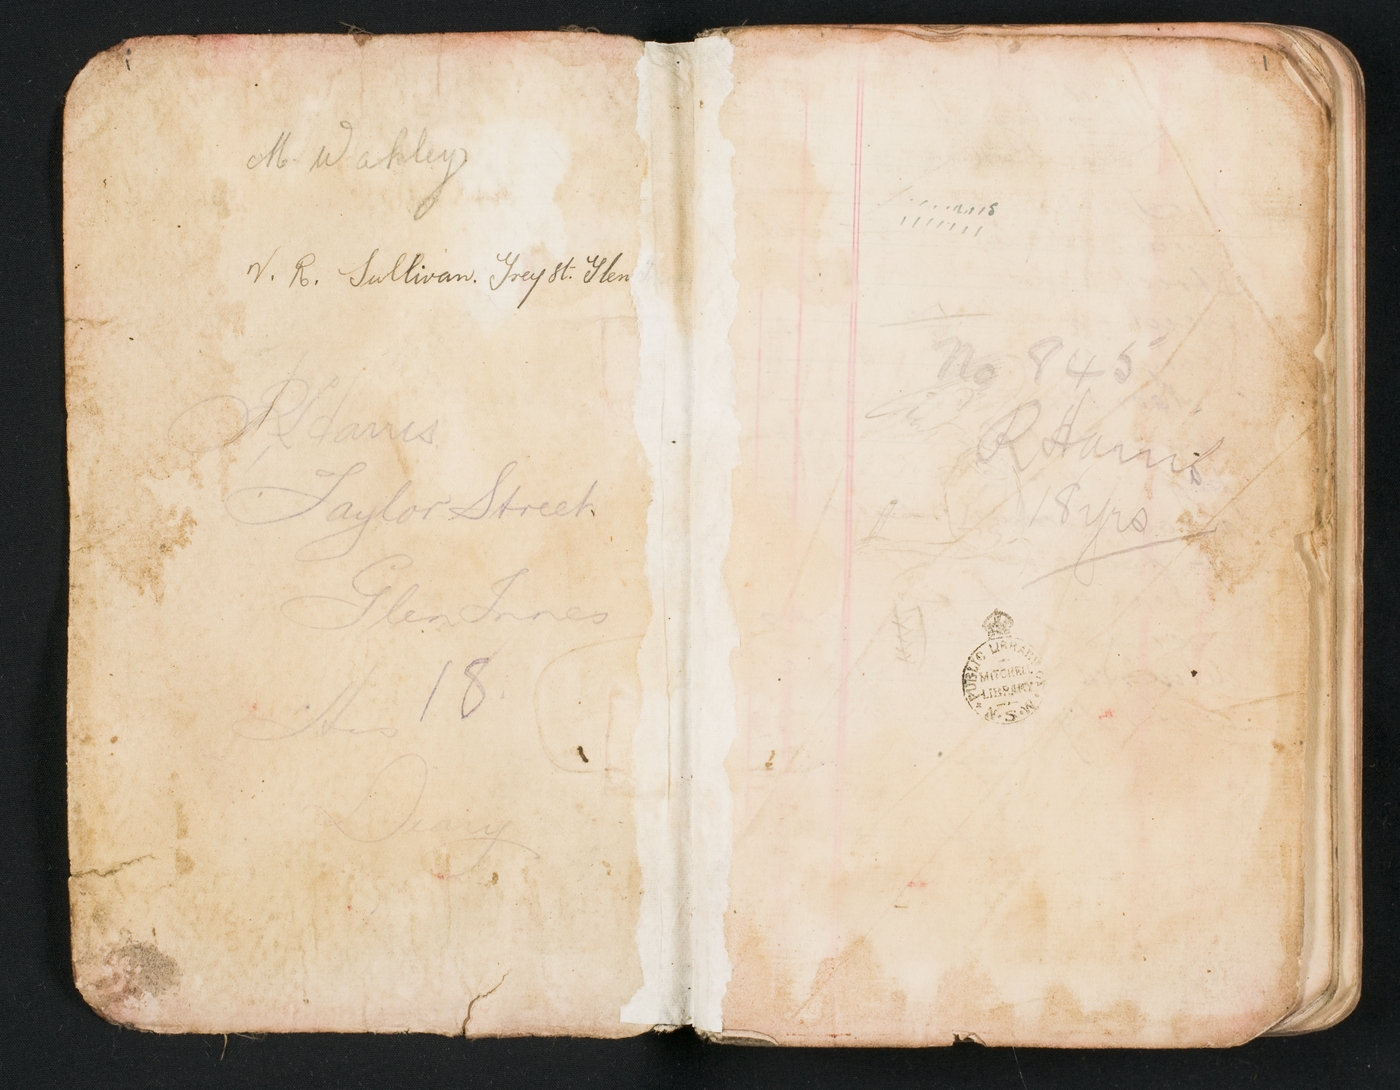 M. Wakley
V. R. Sullivan. Grey St. Glen
R Harris
Taylor Street
Glen Innes
18
His
Diary
No 845
R Harris
18 yrs
PUBLIC LIBRARY
MITCHELL
LIBRARY
N.S.W.